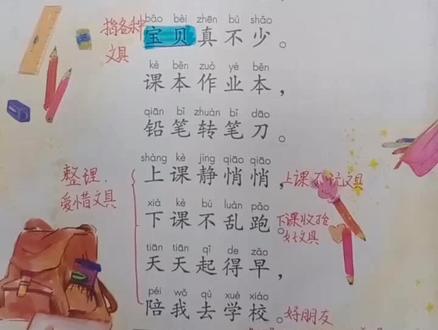 bǎo bèi zhēn bù shǎo
宝贝真不少。
指各种
文具
kè běn zuò yè běn
课本作业本，
qiān bǐ zhuàn bǐ dāo
铅笔转笔刀。
shàng kè jìng qiāo qiāo
上课静悄悄，
上课不玩文具
整理、
爱惜文具
xià kè bú luàn pǎo
下课不乱跑。
下课收拾
好文具
tiān tiān qǐ de zǎo
天天起得早，
péi wǒ qù xué xiào
陪我去学校。
好朋友